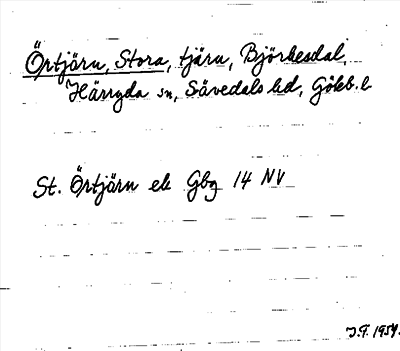 Örtjärn, Stora, tjärn, Björkesdal,
Härryda sn, Sävedals hd, Göteb. l
St. Örtjärn ek Gbg 14 NV
J.F. 1959.